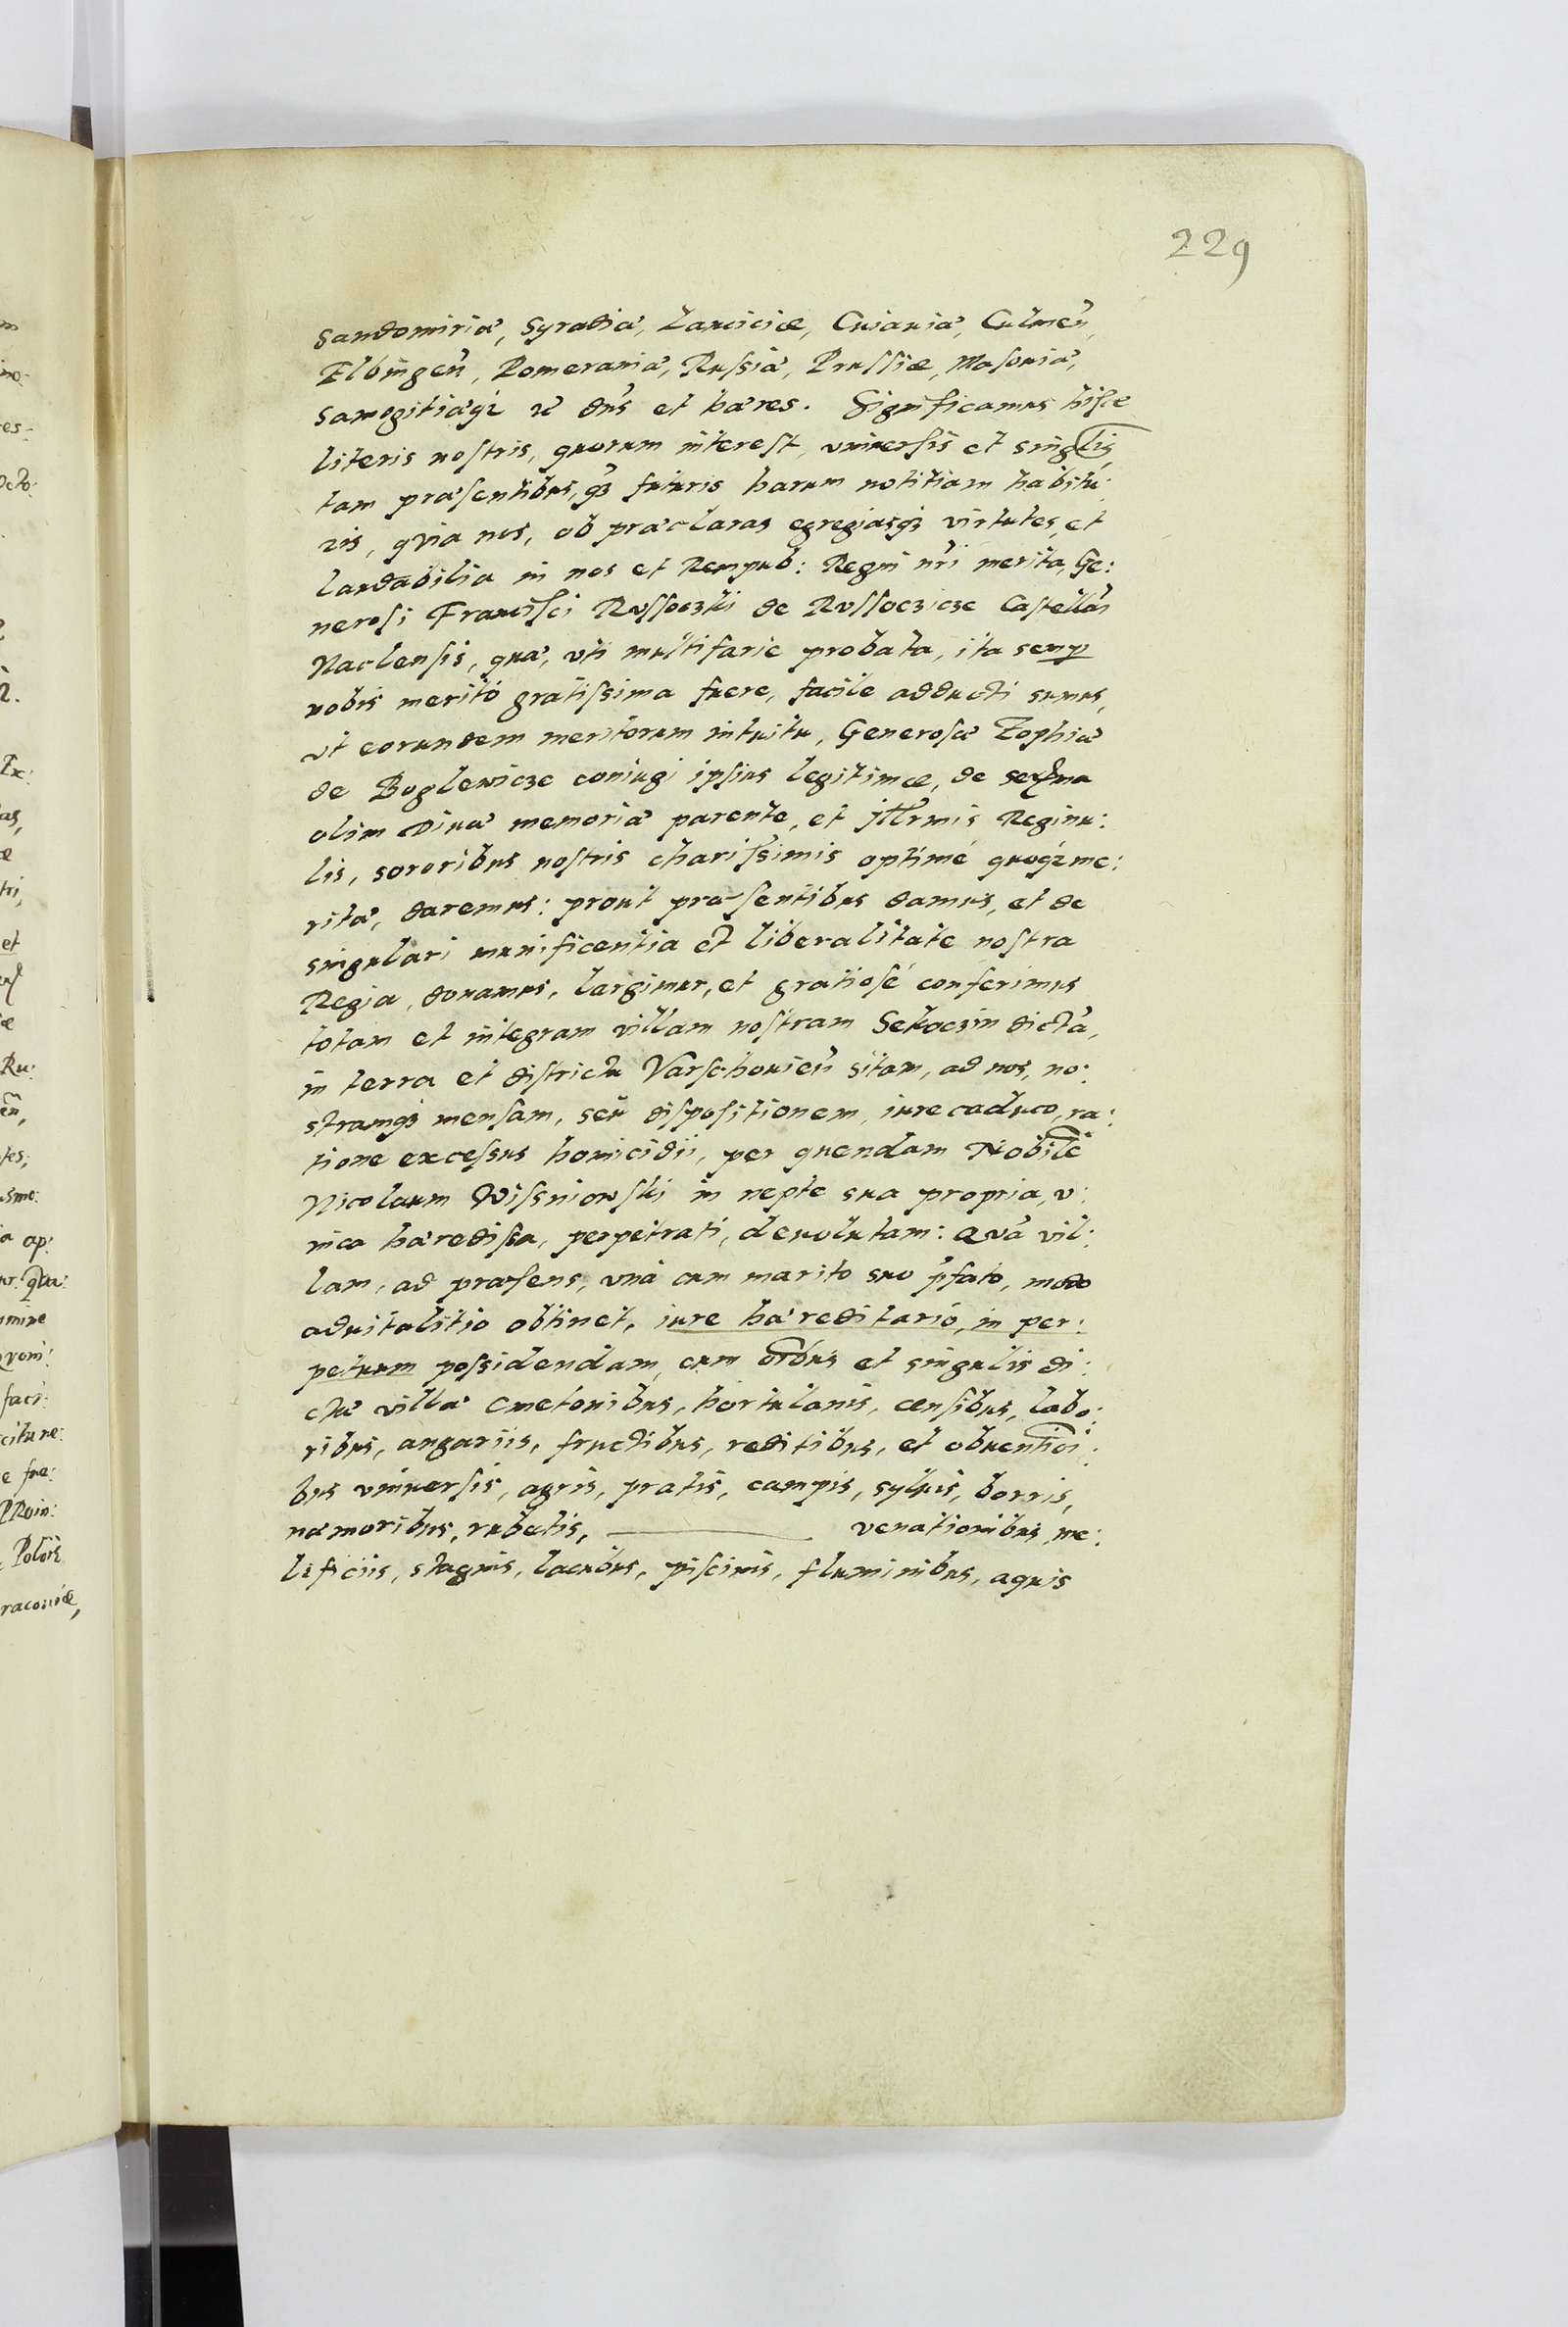 229
Sandomiriæ, Syradiæ, Lanciciæ, Cuiauiæ, Culmeñ,
Elbingeñ, Pomeraniæ, Russiæ, Prussiæ, Masouiæ,
Samogitiæq₃ &c dn̄s et hæres. Significamus hisce
literis nostris, quorum interest, vniuersis et singlis,
tam præsentibus, q̃₃ futuris harum notitiam habitu:
ris, qvia nos, ob præclaras egregiasq₃ virtutes, et
laudabilia in nos et Rempub: Regni nr̄i merita, Ge:
nerosi Francisci Russoczki de Russocicze Castellañ
Naclensis, quæ, vti multifarie probata, ita semp
nobis meritò gratissima fuere, facile adducti sumus,
vt eorundem meritorum intuitu, Generosæ Zophiæ
de Boglewicze coniugi ipsius legitimæ, de
olim Diuæ memoriæ parente, et Illr̄mis Reginu:
lis, sororibus nostris charissimis optimè quoq₃ me:
ritæ, daremus: prout præsentibus damus, et de
singulari munificentia et liberalitate nostra
Regia, donamus, largimur, et gratiosè conferimus
totam et integram villam nostram Sekoczin dictã,
in terra et districtu Varschouieñ sitam, ad nos, no:
stramq₃ mensam, seu dispositionem, iure caduco, ra:
tione excessus homicidii, per quendam Nobilẽ
Nicolaum Wissniowski in nepte sua propria, v:
nica hæredissa, perpetrati, deuolutam: Qvã vil:
lam, ad præsens, vnà cum marito suo p̃fato, modo
aduitalitio obtinet, iure hæreditario, in per:
petuum possidendam, cum om̄bus et singulis di:
ctæ villæ Cmetonibus, hortulanis, censibus, labo:
ribus, angariis, fructibus, reditibus, et obuentioi:
bus vniuersis, agris, pratis, campis, syluis, borris,
næmoribus, rubetis, ——— venationibus, me:
lificiis, stagnis, lacubus, piscinis, fluminibus, aquis